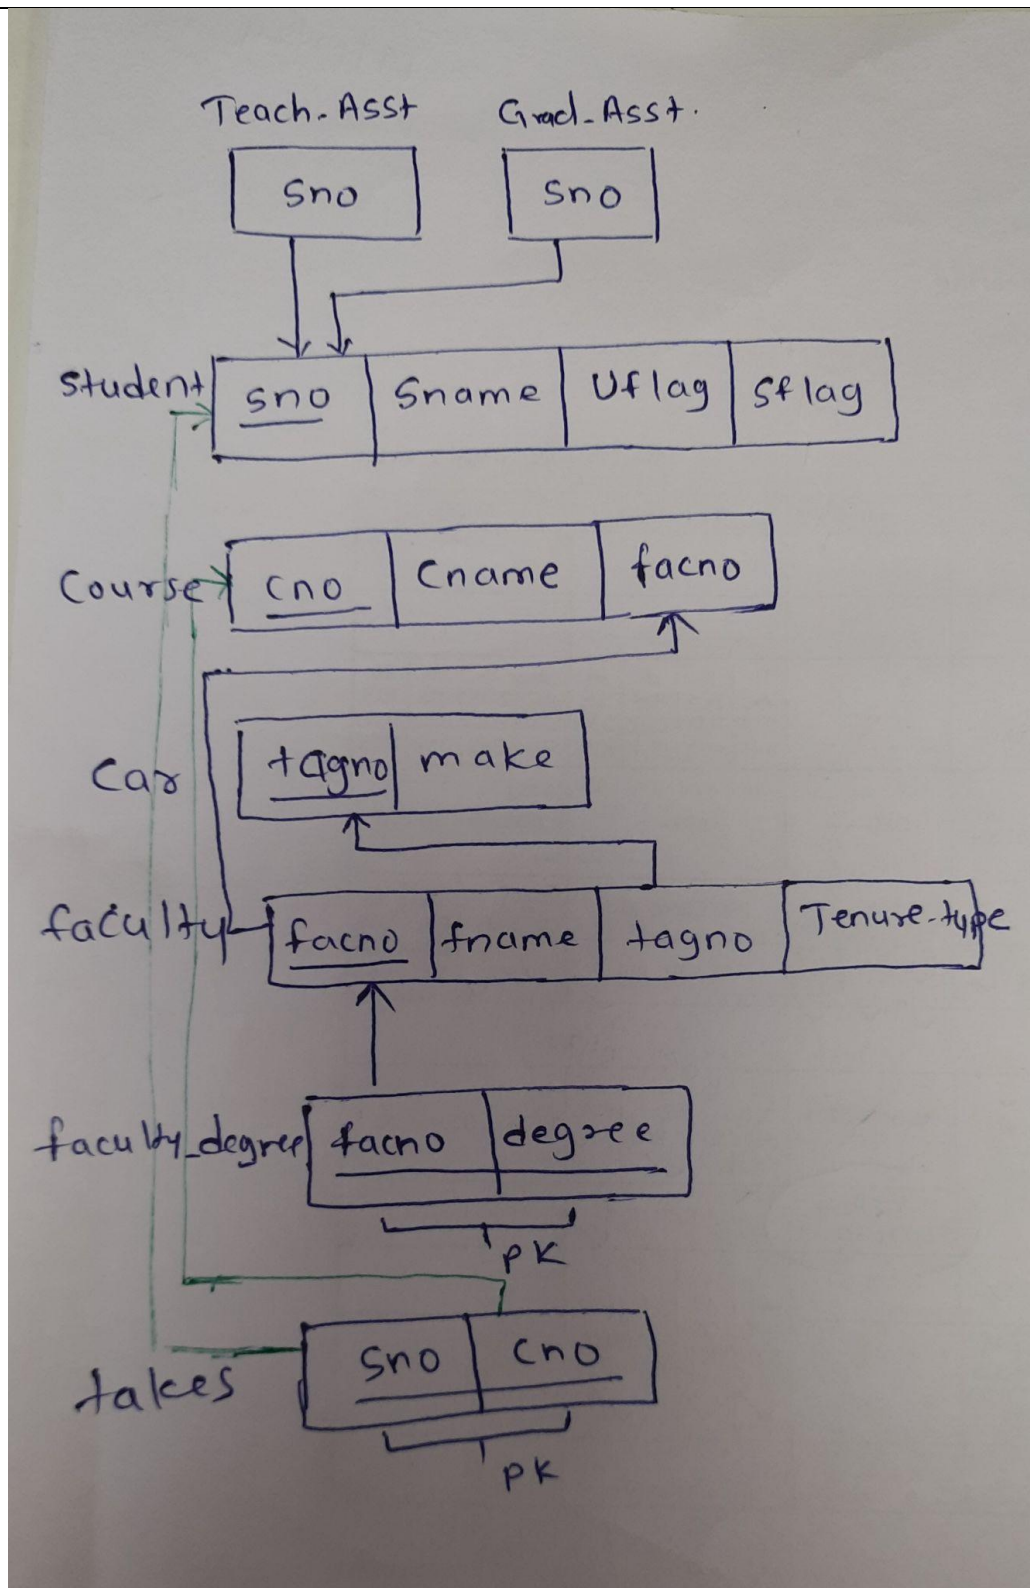 Teach-Asst Grad-Asst.
Sno Sno
Student sno Sname Uflag Sflag
Course cno Cname facno
Car tagno make
faculty facno fname tagno Tenure-type
faculty_degree facno degree
PK
takes Sno Cno
PK